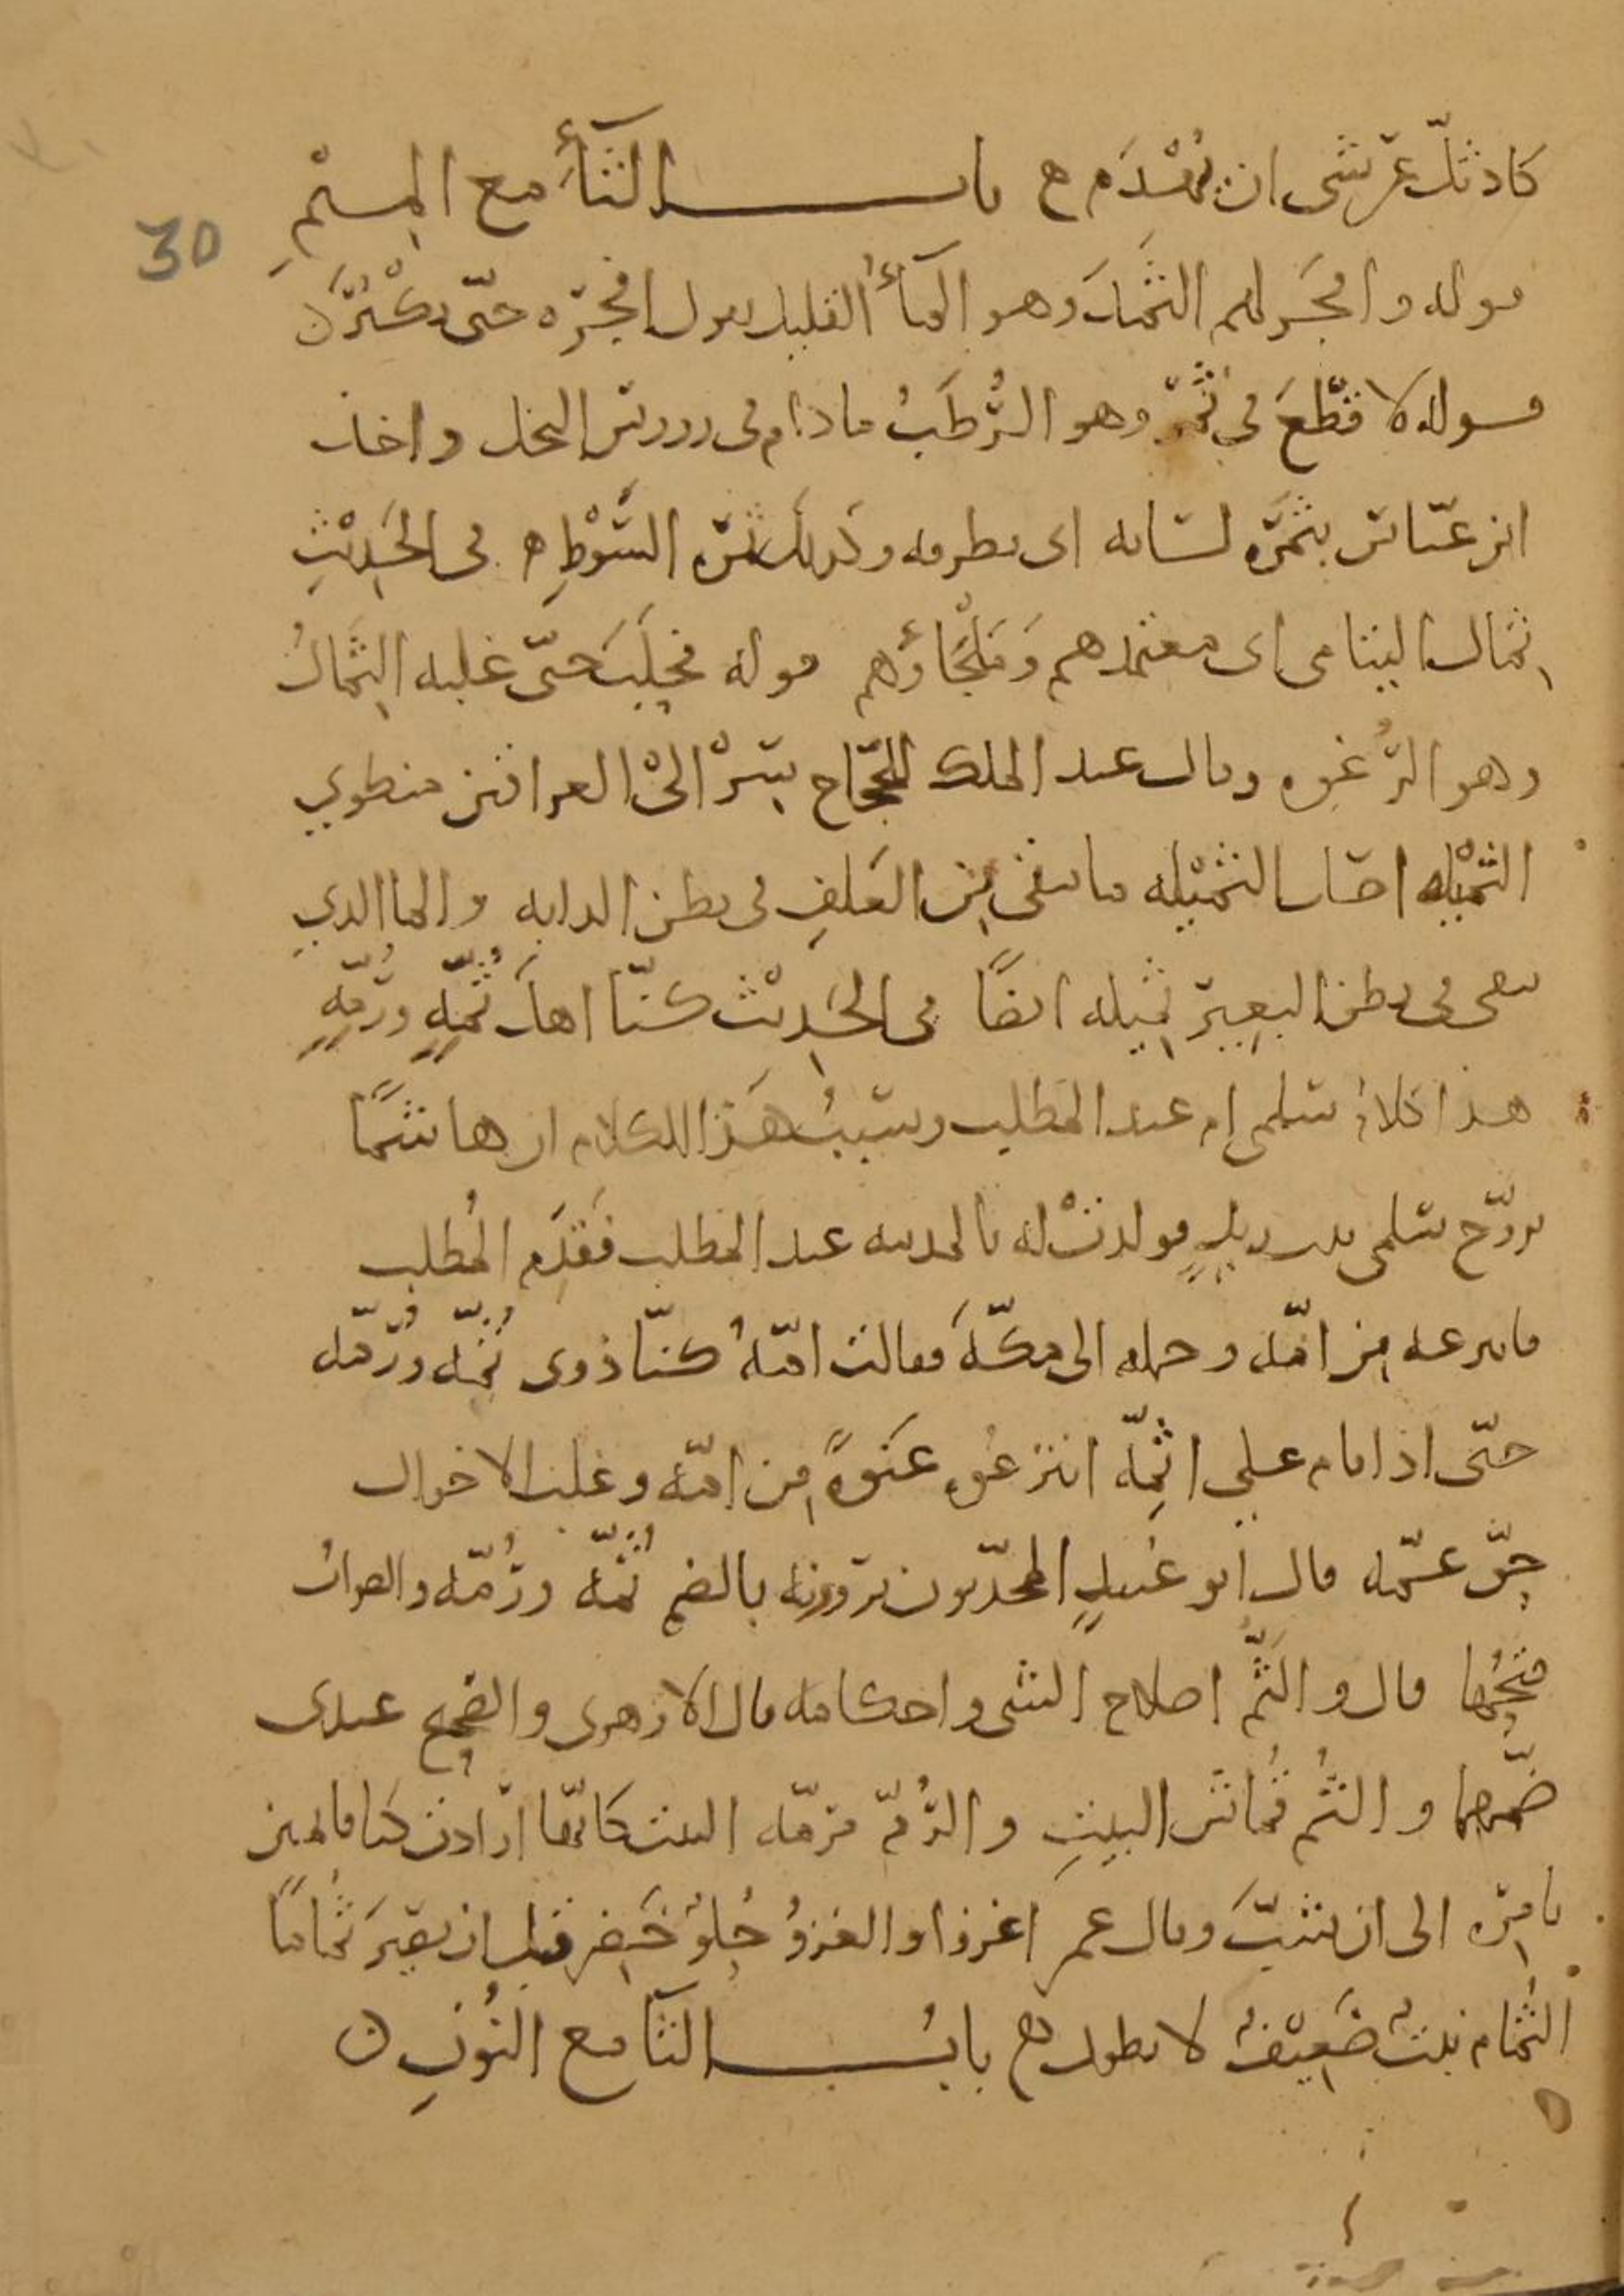 كاد ثلّ عرشى ان يهدم ه باب الثاء مع الميم
30
قوله وافجر لهم الثمد وهو الماء القليل يقول افجره حتى يكثر ن
قوله لا قطع فى ثمر وهو الرُّطَبُ ما دام فى رووس النخل واخذ
ابن عبّاس بثمره لسانه اى بطرفه وكذلك ثمره السَّوْطِ ه فى الحَدِيْثِ
ثمال اليتامى اى معتمدهم ومَلْجَأُوهم قوله فحلب حتّى غلبه الثمال
وهو الرُّغوه وقال عبد الملك للحجّاج سِرْ الىْ العراقين منطوي
الثمِيْله اصل الثميْله ما يبقى مِن العَلفِ فى بطن الدابه والما الذي
يبقى فى بطن البعِير ثميله ايضًا فى الحَدِيْث كنّا اهل ثُمِّهِ ورُمِّهِ
هذا كلامُ سلمى ام عبد المطلب وسَببُ هَذا الكلام ان هاشمًا
تزوّج سلمى بنت زيدٍ فولدتْ له بالمدينه عبد المطلب فَقدِم المُطلب
فانتزعه مِن امّه وحمله الى مكّهَ فقالت امّهُ كنّا ذوى ثُمّه ورُمّه
حتّى اذا قام على ثمّه انتزعُوه عَنوةً مِن امّه وغلب الاخوال
حقّ عمّه قال ابو عُبيدٍ المحدّثون يروونه بالضم ثُمّه ورُمّه والصوابُ
فتحُها قال والثَّم اصلاح الشى واحكامه قال الازهرى والصحيح عندى
ضمّهما والثُم قُماش البيتِ والرُّمّ مرمّه البيت كانّها ارادت كنا قائمين
بامره الى ان شبَّ وقال عمر اغزوا والغزوُ حُلوٌ خَضِر قبل ان يصيرَ ثُمامًا
الثُمام نبتٌ ضَعِيْفٌ لا يطول ه بابُ الثا مع النُونِ ن